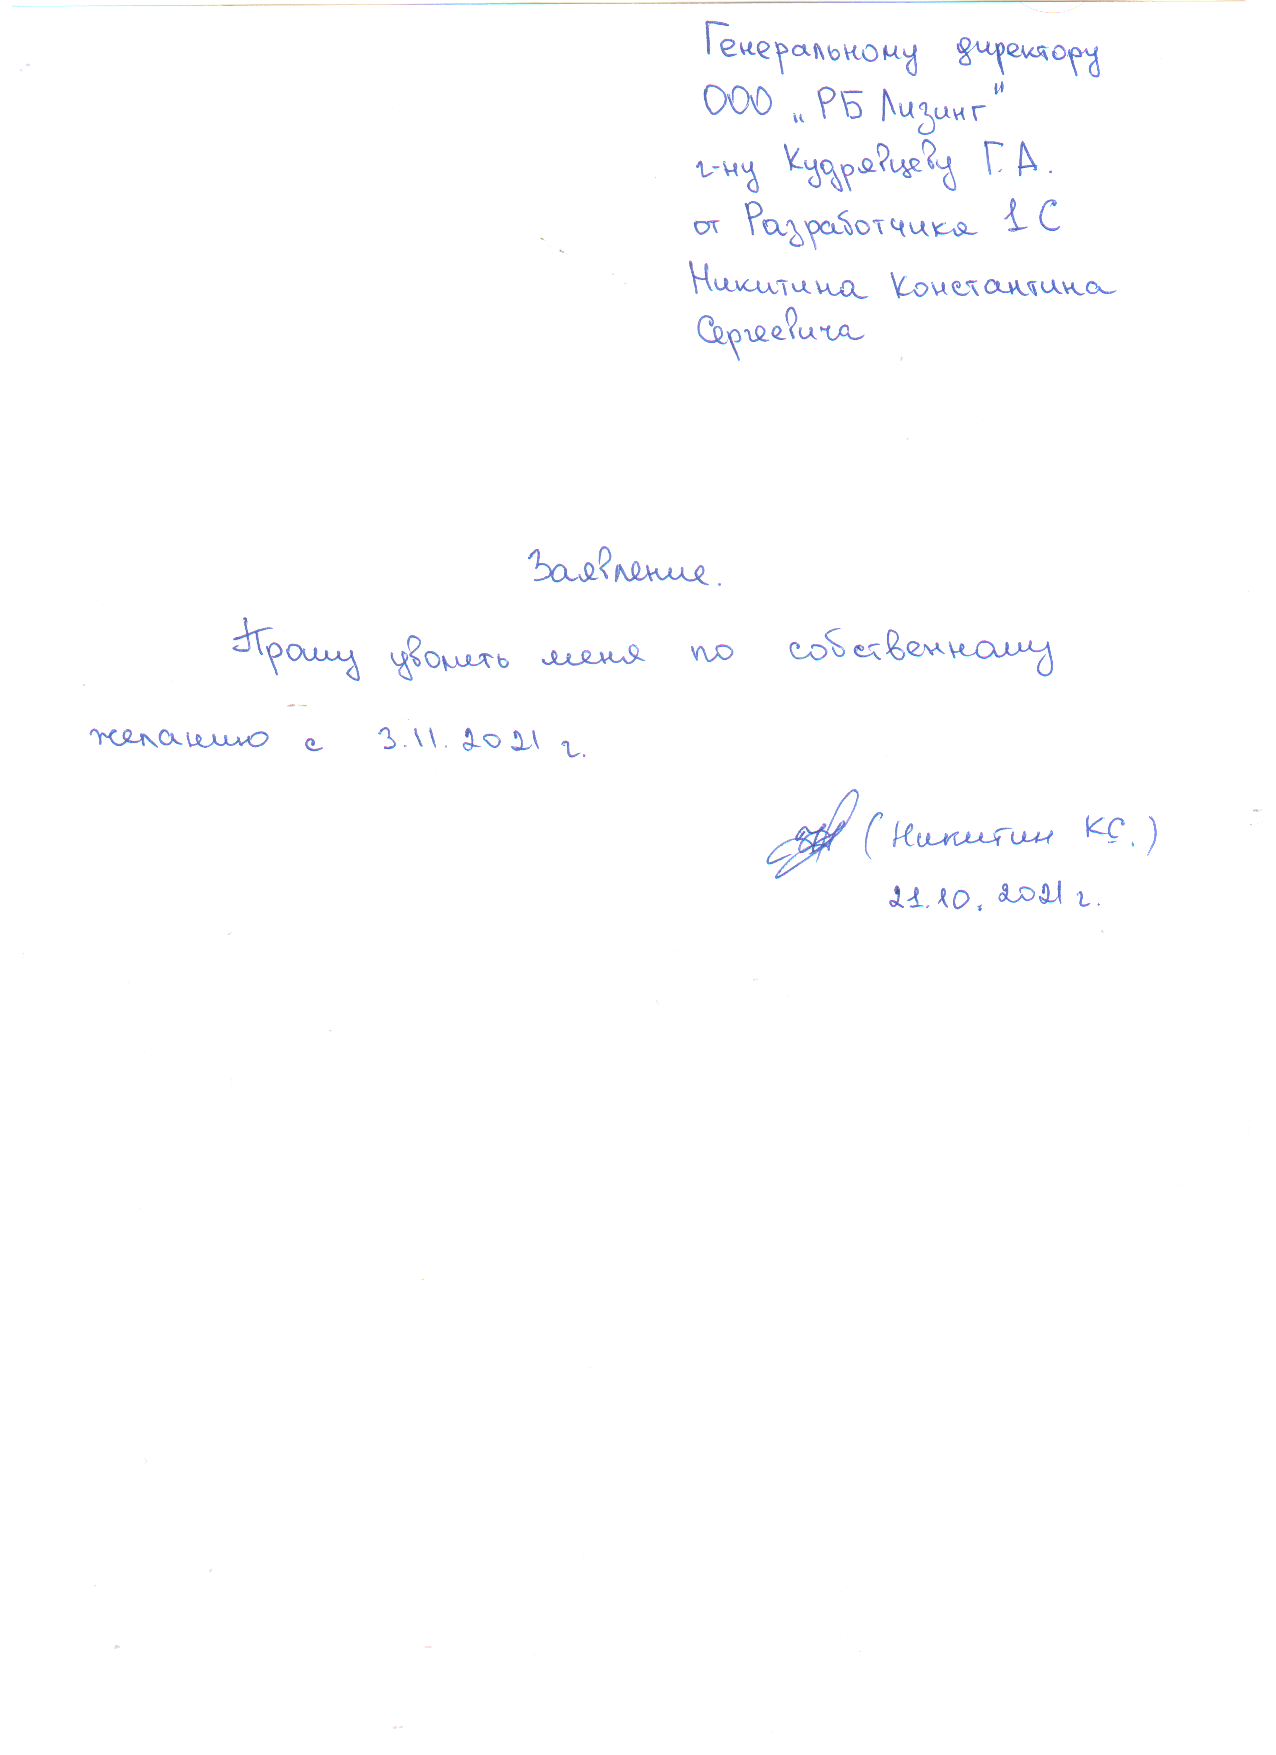 Генеральному директору
ООО „РБ Лизинг"
г-ну Кудрявцеву Г.А.
от Разработчика 1С
Никитина Константина
Сергеевича
Заявление.
Прошу уволить меня по собственному
желанию с 3.11.2021 г.
(Никитин К.С.)
21.10.2021 г.